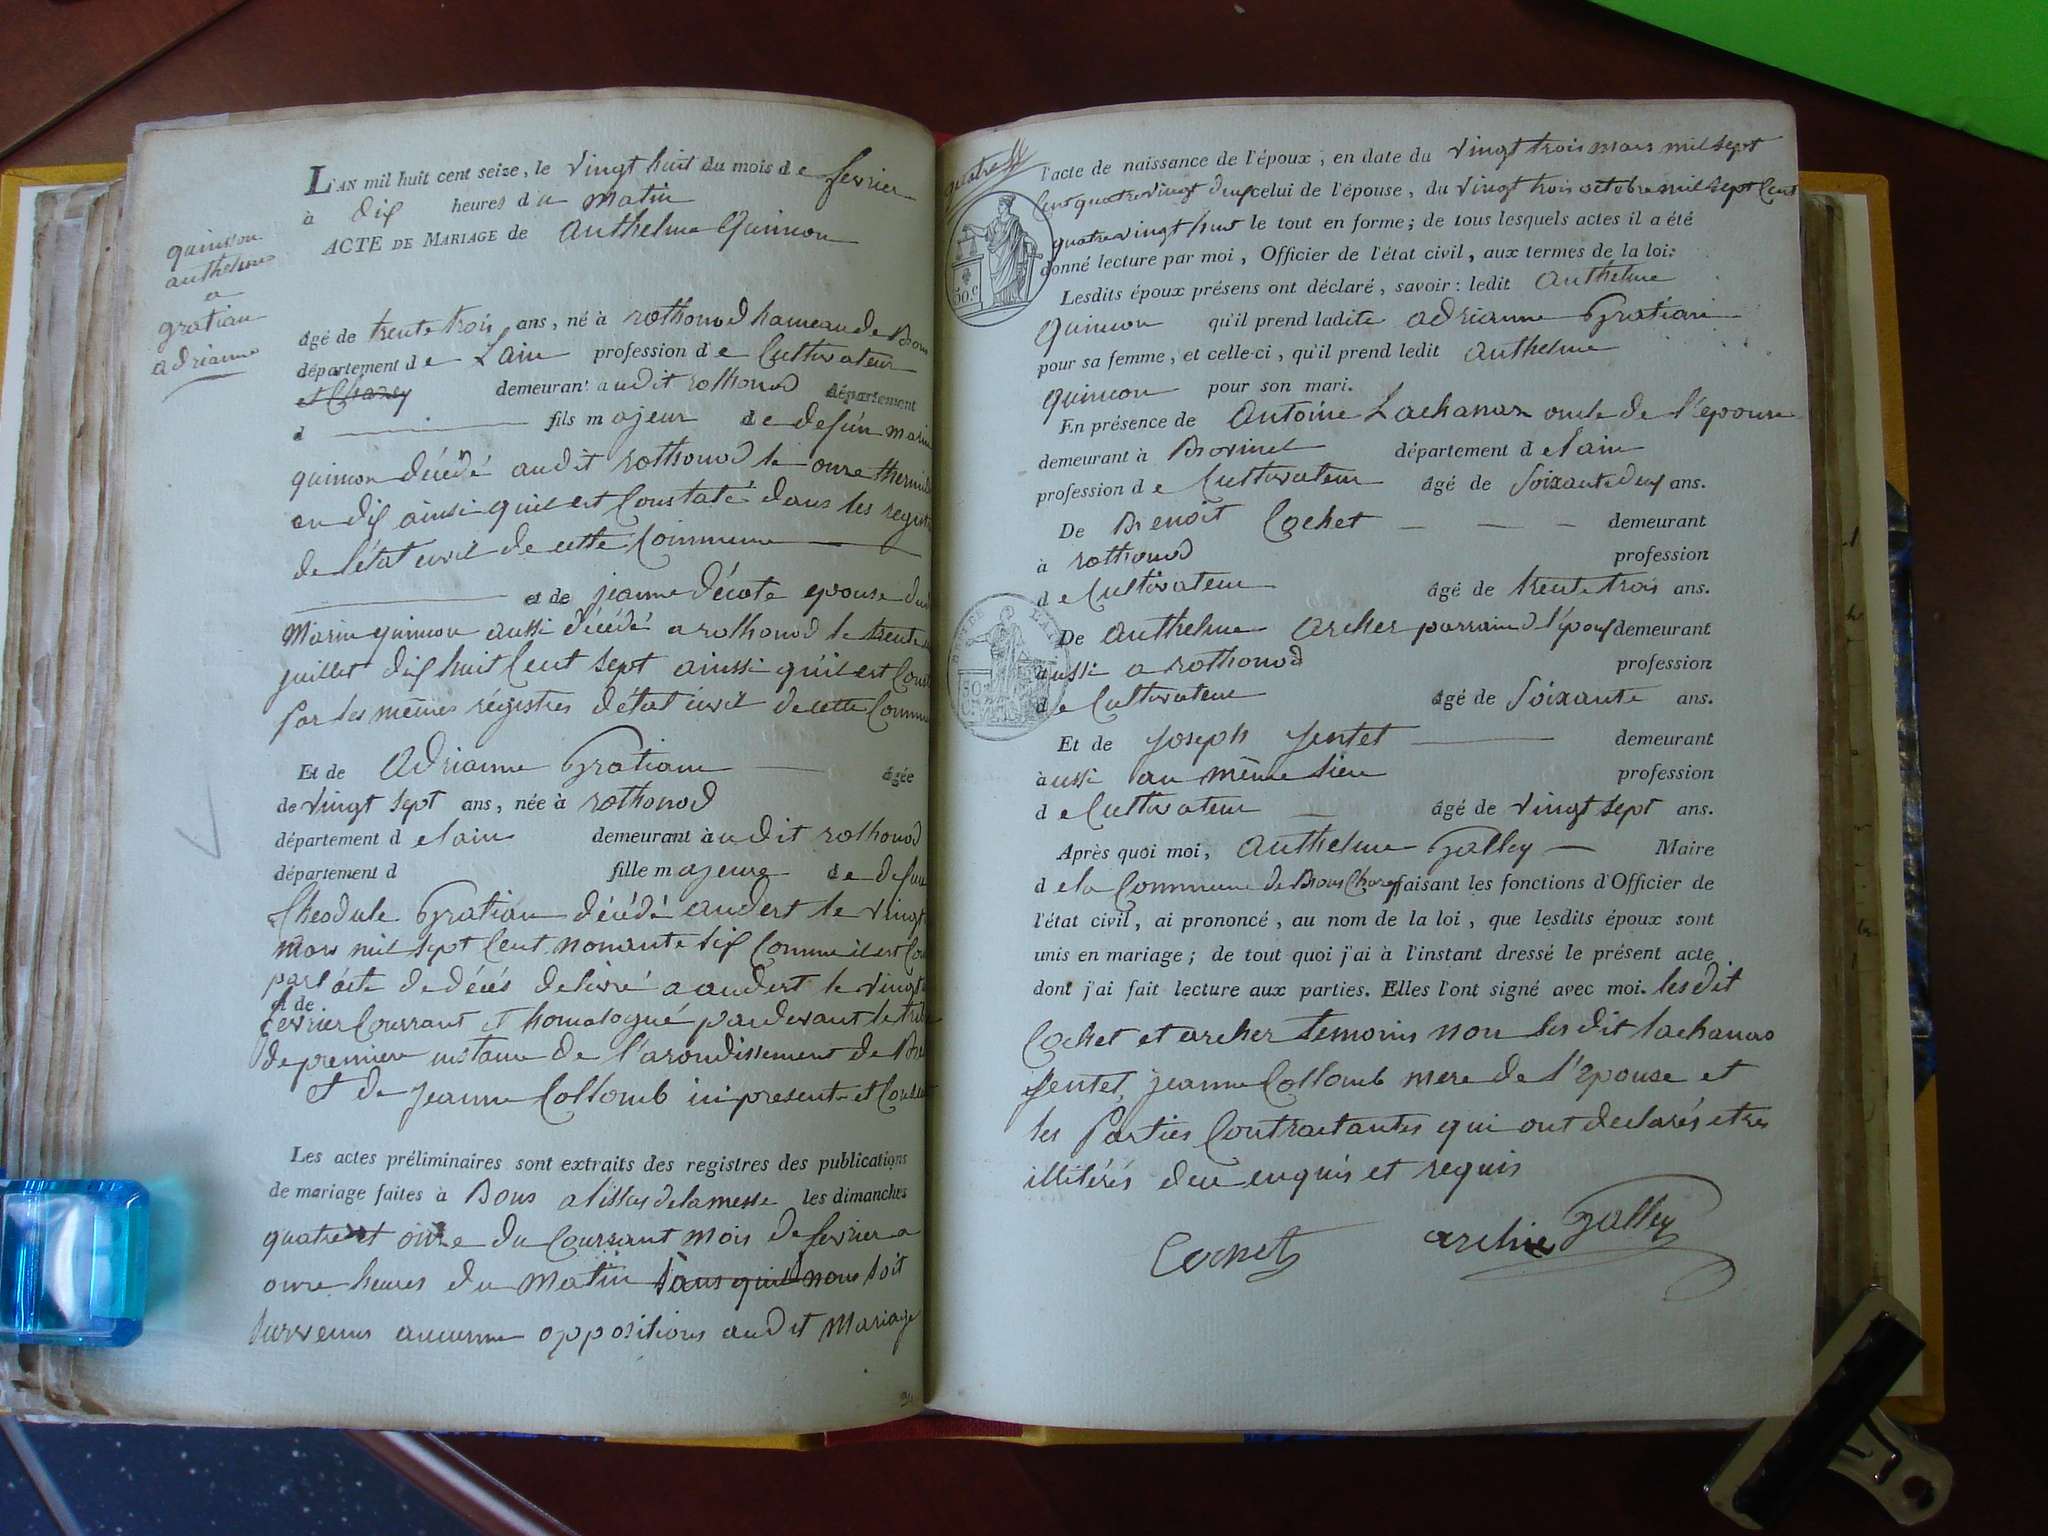 L'AN mil huit cent seize, le vingt huit du mois de fevrier
à dix heures du matin
ACTE DE MARIAGE de Anthelme Quinson
quinson
anthelme
a
gratian
adrianne
âgé de trente trois ans, né à rothonod hameau de Bons
département de Lain profession de Cultivateur
et Chazey demeurant audit rothonod département
d fils majeur de defun marin
quinson décédé audit rothonod le onze thermid
an dix ainsi quil est Constaté dans les regist
de l'état civil de cette Commune
et de jeanne décote epouse dud
Marin quinson aussi décédé a rothonod le trente
juillet dix huit Cent sept ainssi quil est Const
par les mêmes régistres d'état civil de cette Commu
Et de Adrianne Gratian âgée
de vingt sept ans, née à rothonod
département de lain demeurant audit rothonod
département d fille majeure de defun
Theodule Gratian décédé andert le vingt
mars mil sept Cent nonante six Comme il est Co
par l'acte de décés delivré a andert le vingt
et de
fevrier Courrant et homologué pardevant le trib
de premiere instance de l'arondissement de Be
et de jeanne Collomb ici presente et Consent
Les actes préliminaires sont extraits des registres des publications
de mariage faites à Bons a lissus de la messe les dimanches
quatre et onze du Courrant mois de fevrier a
onze heures du matin sans quil nous soit
survenus aucunne oppositions audit mariage
quatre
l'acte de naissance de l'époux, en date du vingt trois mars mil sept
Cent quatre vingt deux celui de l'épouse, du vingt trois octobre mil sept Cent
quatre vingt huit le tout en forme; de tous lesquels actes il a été
donné lecture par moi, Officier de l'état civil, aux termes de la loi:
50.c
Lesdits époux présens ont déclaré, savoir: ledit Anthelme
Quinson qu'il prend ladite adrianne Gratian
pour sa femme, et celle-ci, qu'il prend ledit anthelme
quinson pour son mari.
En présence de Antoine Lachanas oncle de l'epouse
demeurant à département de lain
profession de Cultivateur âgé de soixante deux ans.
De Benoit Cochet demeurant
à rothonod profession
de Cultivateur âgé de trente trois ans.
De anthelme archer parrain d l'epoux demeurant
aussi a rothonod profession
de Cultivateur âgé de soixante ans.
Et de joseph jentet demeurant
aussi au même lieu profession
de Cultivateur âgé de vingt sept ans.
Après quoi moi, anthelme Galley Maire
de la Commune de Bons Chazey faisant les fonctions d'Officier de
l'état civil, ai prononcé, au nom de la loi, que lesdits époux sont
unis en mariage; de tout quoi j'ai à l'instant dressé le présent acte
dont j'ai fait lecture aux parties. Elles l'ont signé avec moi. lesdit
Cochet et archer temoins non les dit lachanas
jentet, jeanne Collomb mere de l'epouse et
les Parties Contractantes qui ont declarés etres
illitérés deu enquis et requis
Cochet archer Galley